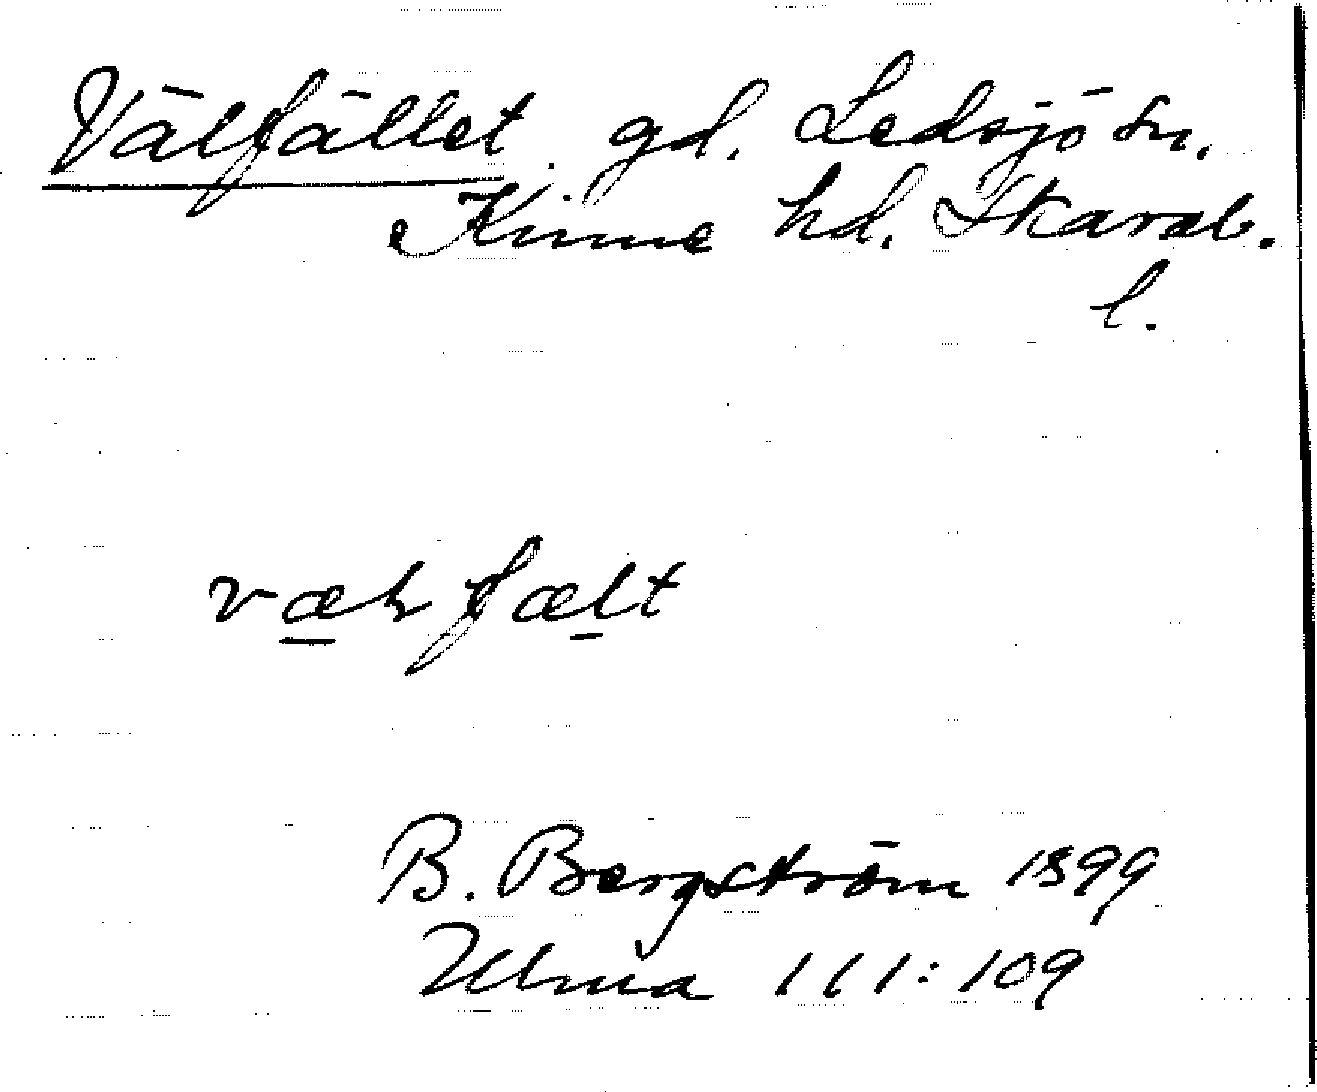 Välfället. gd. Ledsjö sn.
Kinne hd. Skarab.
l.
væłfælt
B. Bergström 1899
Ulma 111:109